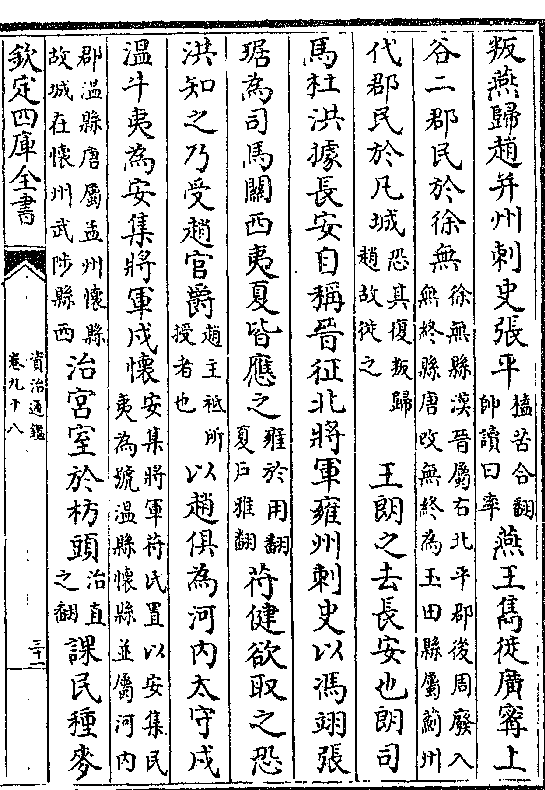 叛燕歸趙并州刺史張平搕苦合翻帥讀曰率燕王雋徙廣寗上
谷二郡民於徐無徐無縣漢晉屬右北平郡後周廢入無終縣唐改無終為玉田縣屬薊州
代郡民於凡城恐其復叛歸趙故徙之王朗之去長安也朗司
馬杜洪據長安自稱晉征北將軍雍州刺史以馮翊張
琚為司馬關西夷夏皆應之雍於用翻夏戶雅翻苻健欲取之恐
洪知之乃受趙官爵趙主祗所授者也以趙俱為河内太守戍
溫牛夷為安集將軍戍懷安集將軍苻氏置以安集民夷為號溫縣懷縣並屬河内
郡溫縣唐屬孟州懷縣故城在懷州武陟縣西治宮室於枋頭治直之翻課民種麥
欽定四庫全書
資治通鑑
卷九十八
三十一